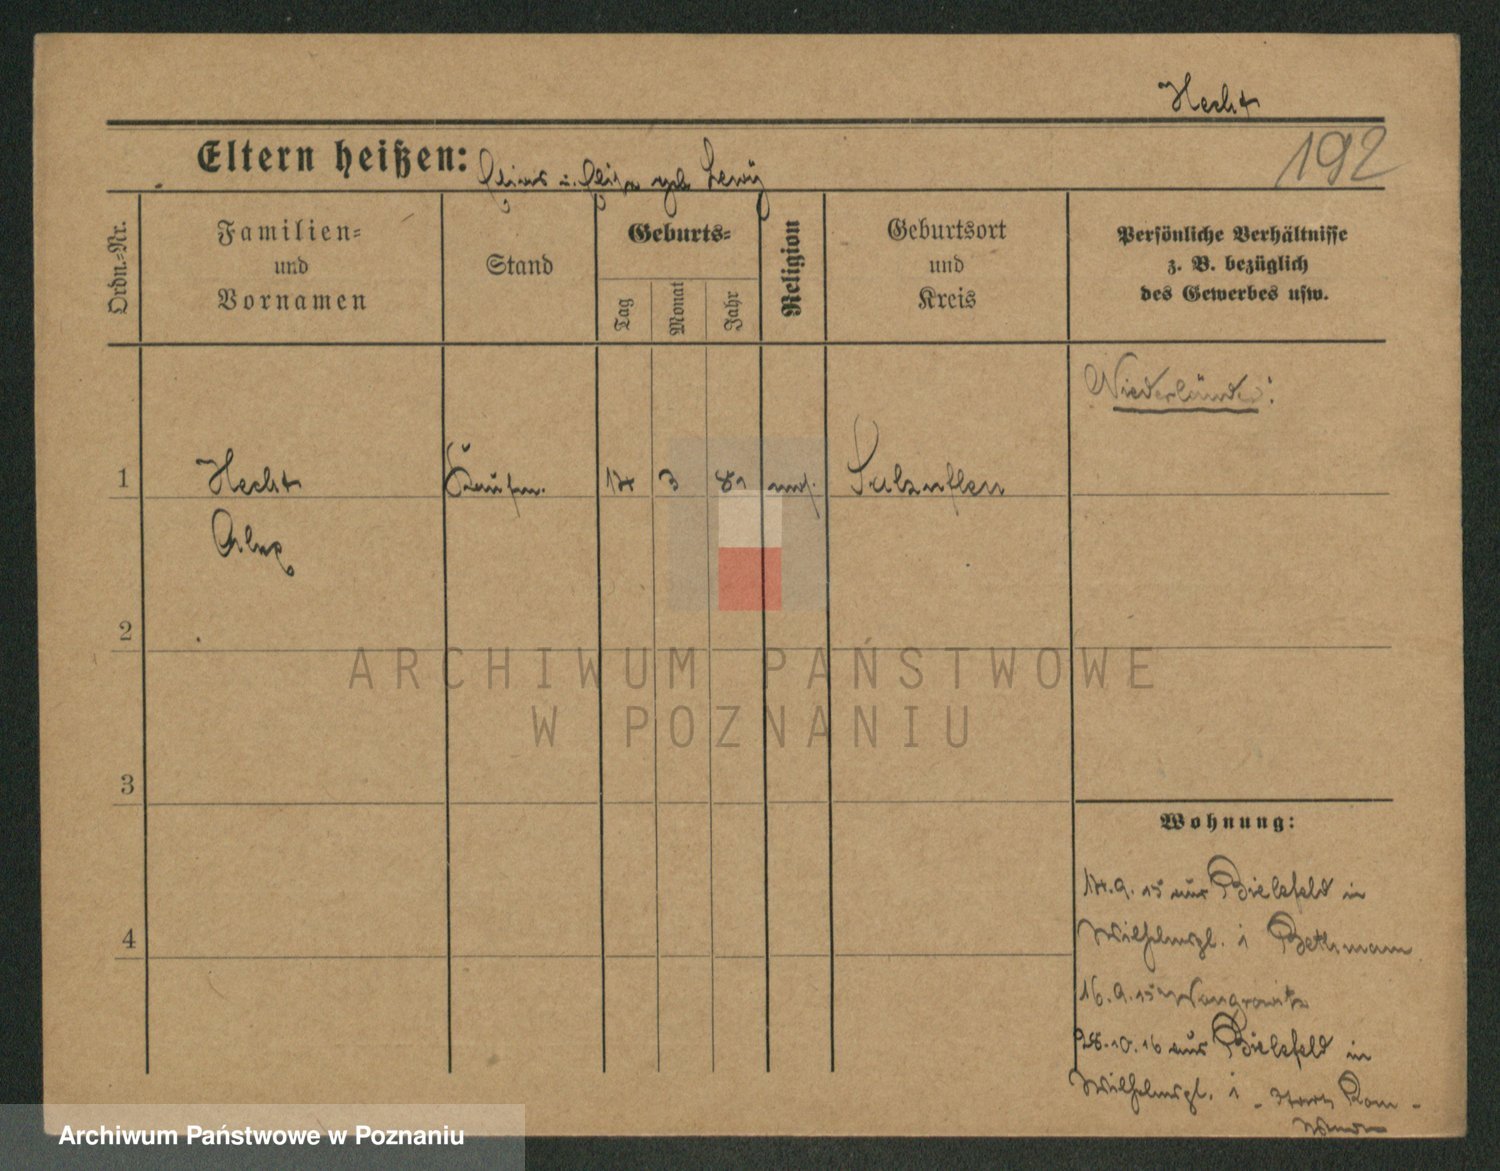 Hecht
192
Eltern heißen: u. geb Lewy
Ordn.-Nr.
Familien-
und
Vornamen
Stand
Geburts-
Tag
Monat
Jahr
Religion
Geburtsort
und
Kreis
Persönliche Verhältnisse
z. B. bezüglich
des Gewerbes usw.
Niederländer:
1 Hecht Kaufm. 14 3 81 mos. Salzuflen
Alex
2
3
4
ARCHIWUM PAŃSTWOWE
W POZNANIU
Wohnung:
14.9.15 aus Bielefeld in
Wilhelmspl. 1 Bethmann
16.9.15 Wongrowitz
28.10.16 aus Bielefeld in
Wilhelmspl. 1
Archiwum Państwowe w Poznaniu